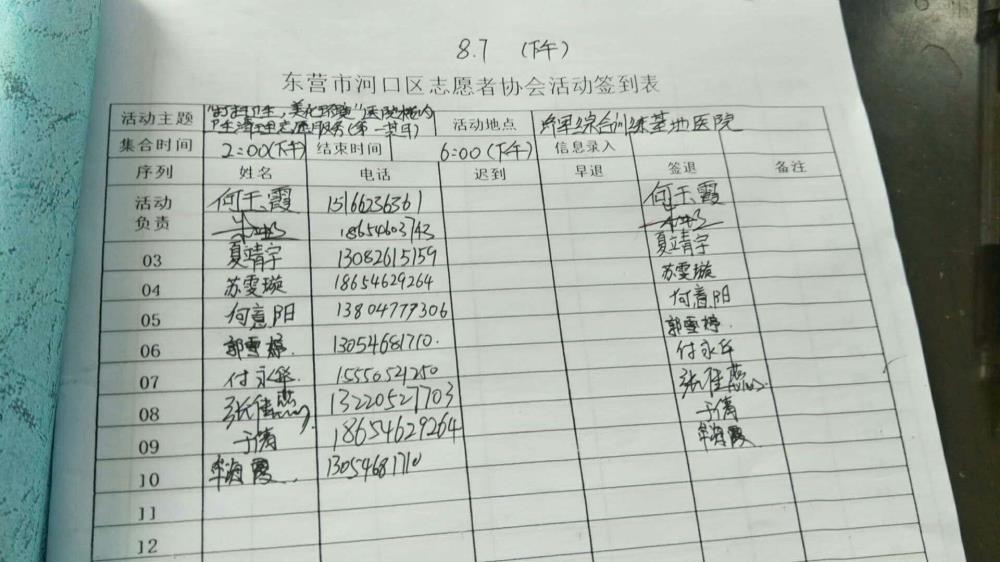 8.7 (下午)
东营市河口区志愿者协会活动签到表
活动主题 美化环境"医院楼内 活动地点 综合训练基地医院
志愿服务(第一其月)
集合时间 2:00(下午) 结束时间 6:00(下午) 信息录入
序列 姓名 电话 迟到 早退 签退 备注
活动 何玉霞 15166236361 何玉霞
负责 18654603743
03 夏靖宇 13082615159 夏靖宇
04 苏雯璇 18654629264 苏雯璇
05 何意阳 13804779306 何意阳
06 郭雪婷. 13054681710. 郭雪婷.
07 付永华. 15550521250 付永华
08 张佳 13220527703 张佳
09 于倩 18654629264 于倩
10 海霞. 13054681710 海霞
11
12